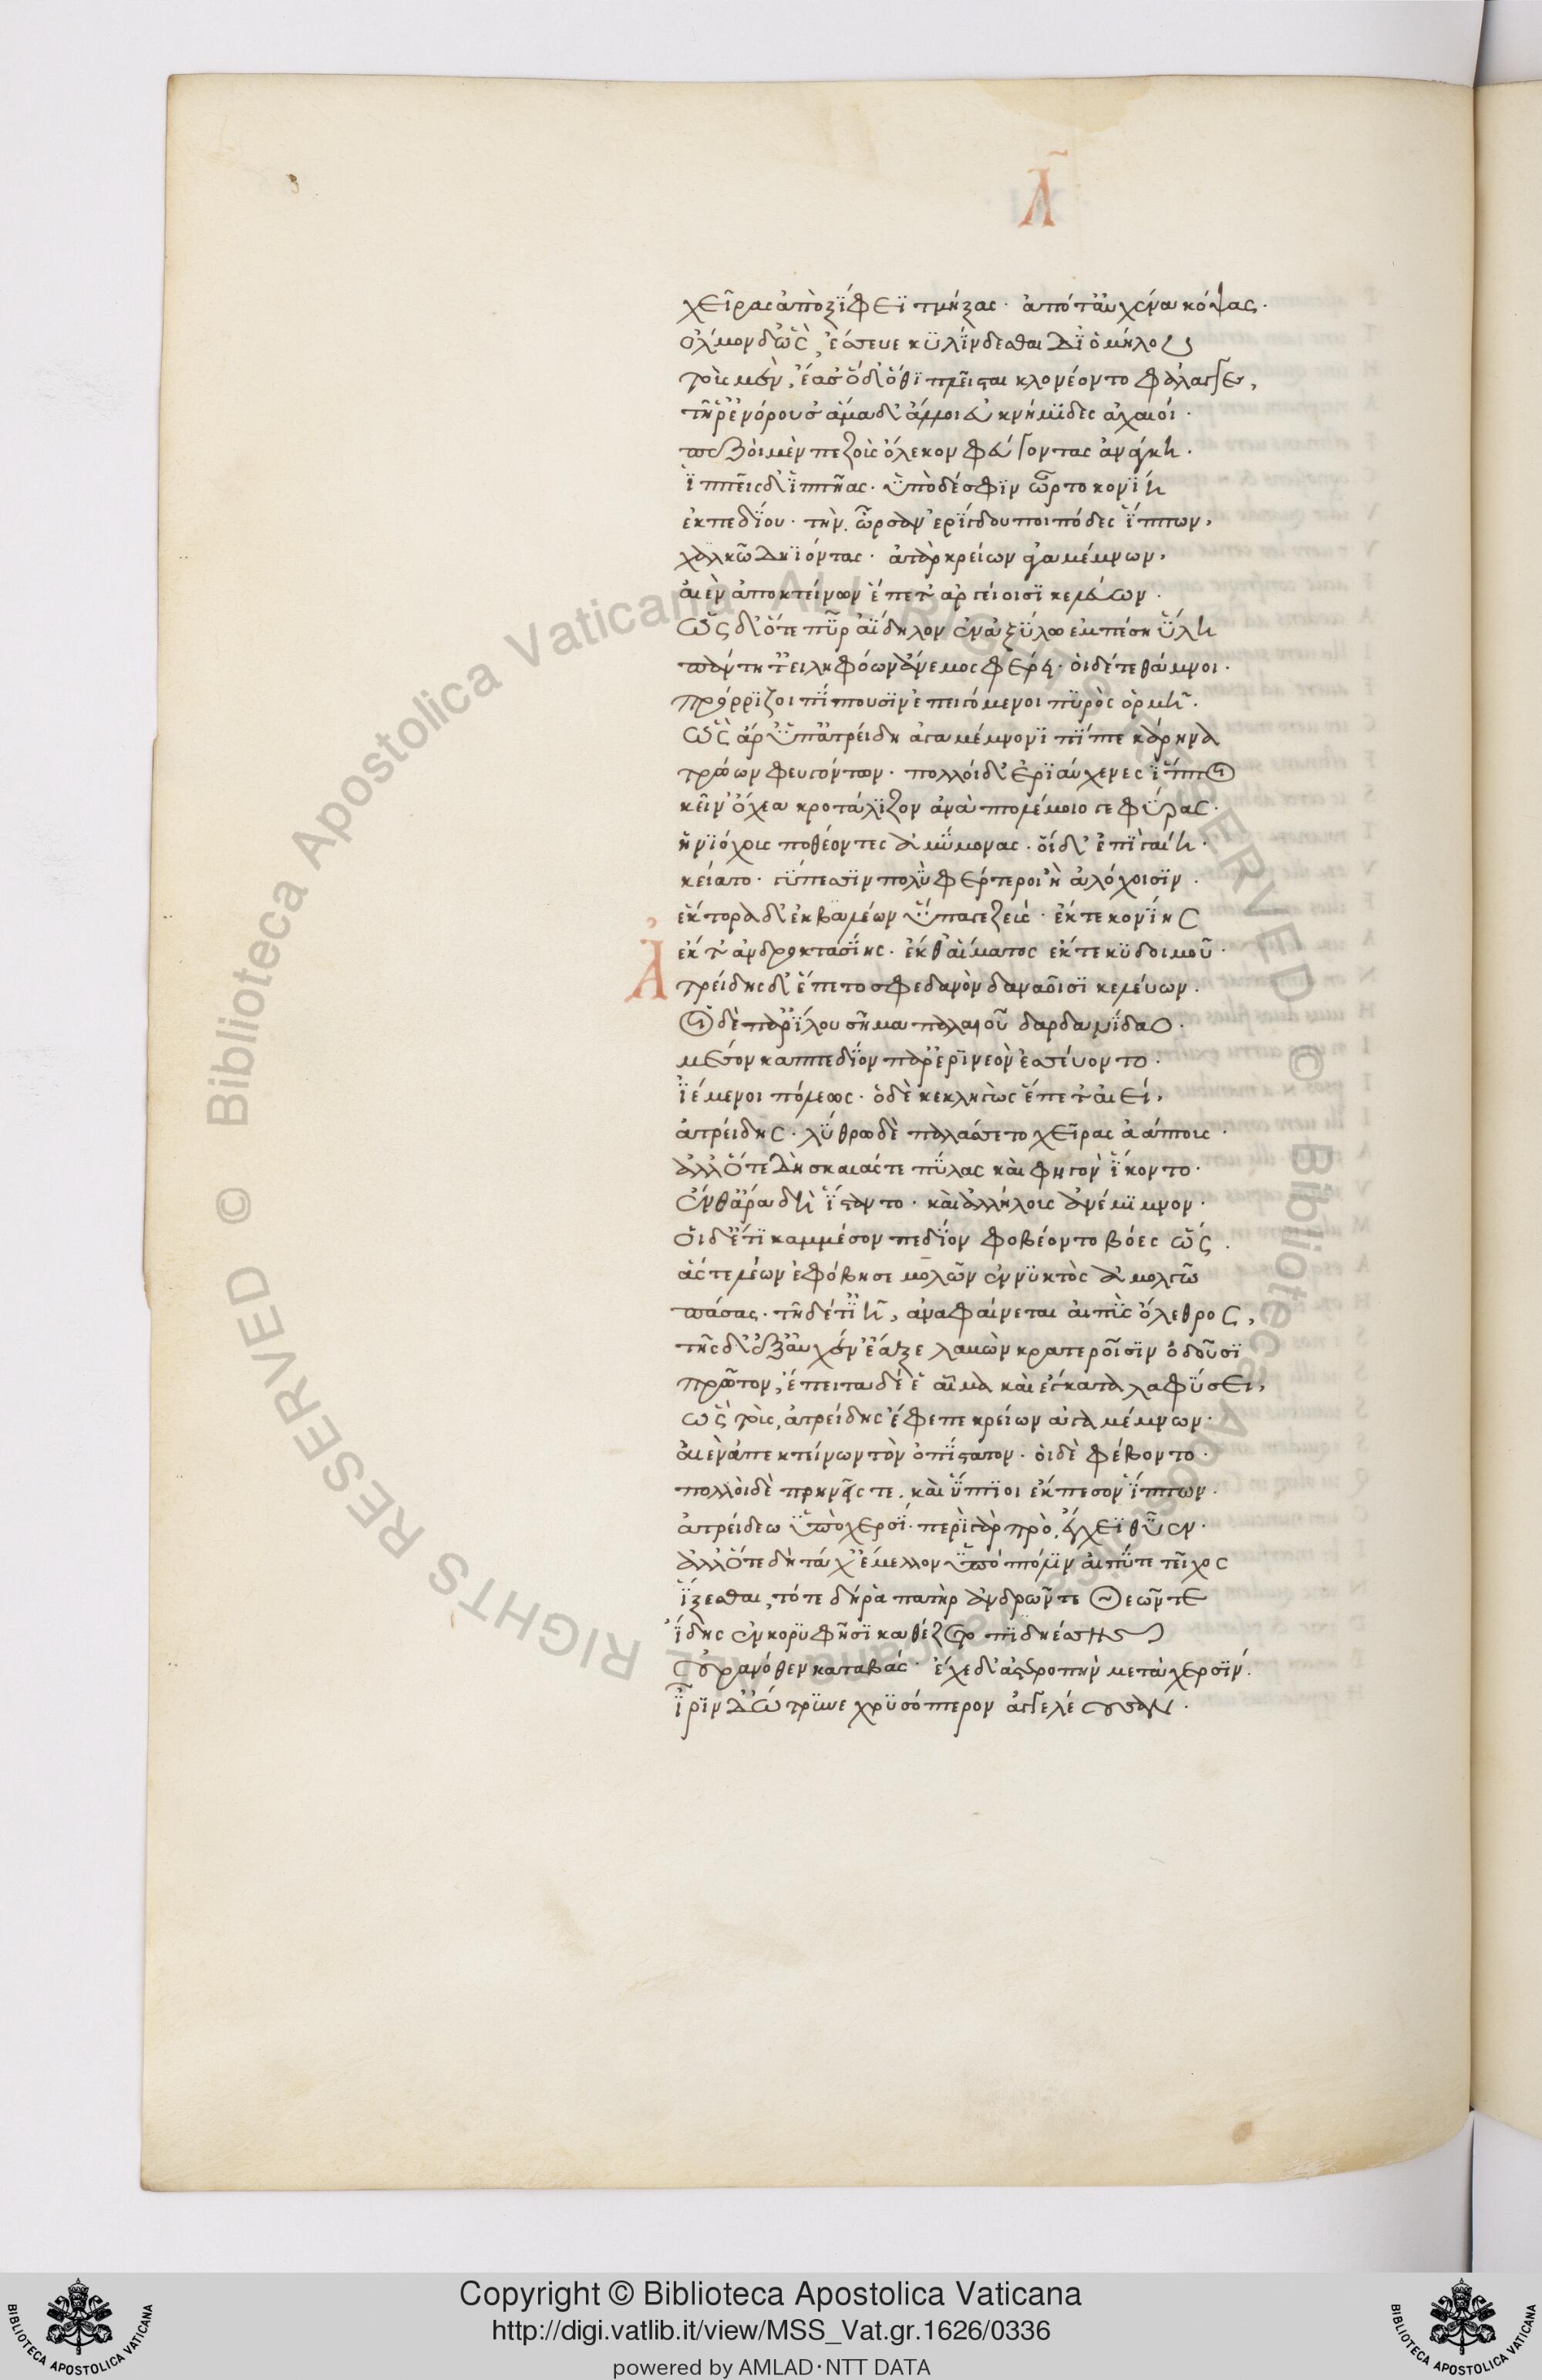 Λ
χεῖρας ἀπὸ ξίφεϊ τμήξας· ἀπό τ' αὐχένα κόψας.
ὅλμον δ' ὣς ἔσσευε κυλίνδεσθαι δι' ὁμίλου
τοὺς μὲν, ἔασ' ὃ δ' ὅθι πλεῖσται κλονέοντο φάλαγγες,
τῇ ῥ' ἐνόρουσ' ἅμα δ' ἄλλοι ἐϋκνήμιδες ἀχαιοί·
πεζοὶ μὲν πεζοὺς ὄλεκον φεύγοντας ἀνάγκη·
ἱππεῖς δ' ἱππῆας· ὑπὸ δέ σφιν ὦρτο κονίη
ἐκ πεδίου· τὴν ὦρσαν ἐρίγδουποι πόδες ἵππων,
χαλκῶ δηιόντας· ἀτὰρ κρείων ἀγαμέμνων,
αἰὲν ἀποκτείνων ἕπετ' ἀργείοισι κελεύων.
ὡς δ' ὅτε πῦρ ἀΐδηλον ἐν ἀξύλω ἐμπέση ὕλη
πάντη τ' εἰλυφόων ἄνεμος φέρει· οἱ δέ τε θάμνοι·
πρόρριζοι πίπτουσιν ἐπειγόμενοι πυρὸς ὁρμῇ·
ὣς ἄρ' ὑπ' ἀτρείδη ἀγαμέμνονι πῖπτε κάρηνα
τρώων φευγόντων· πολλοὶ δ' ἐριαύχενες ἵπποι
κείν' ὄχεα κροτάλιζον ἀνὰ πτολέμοιο γεφύρας·
ἡνιόχους ποθέοντες ἀμύμονας· οἱ δ' ἐπὶ γαίη·
κείατο· γύπεσσιν πολὺ φέρτεροι ἢ ἀλόχοισιν.
ἕκτορα δ' ἐκ βελέων ὕπαγε ζεύς· ἔκ τε κονίης
ἔκ τ' ἀνδροκτασίης· ἔκ θ' αἵματος ἔκ τε κυδοιμοῦ·
Ἀτρείδης δ' ἕπετο σφεδανὸν δαναοῖσι κελεύων.
οἱ δὲ παρ' ἴλου σῆμα παλαιοῦ δαρδανίδαο·
μέσσον καππεδίον παρ' ἐρινεὸν ἐσσεύοντο·
ἱέμενοι πόλεως· ὁ δὲ κεκληγὼς ἕπετ' αἰεί,
ἀτρείδης· λύθρω δὲ παλάσσετο χεῖρας ἀάπτους·
ἀλλ' ὅτε δὴ σκαιάς τε πύλας καὶ φηγὸν ἵκοντο·
ἔνθ' ἄρα δὴ ἵσταντο· καὶ ἀλλήλους ἀνέμιμνον·
οἱ δ' ἔτι καμμέσον πεδίον φοβέοντο βόες ὥς.
ἅς τε λέων ἐφόβησε μολὼν ἐν νυκτὸς ἀμολγῶ
πάσας· τῇ δέ τ' ἰῇ, ἀναφαίνεται αἰπὺς ὄλεθρος,
τῆς δ' ἐξ αὐχέν' ἔαξε λαβὼν κρατεροῖσιν ὀδοῦσι
πρῶτον, ἔπειτα δέ θ' αἷμα καὶ ἔγκατα λαφύσσει,
ὣς τοὺς ἀτρείδης ἔφεπε κρείων ἀγαμέμνων·
αἰὲν ἀπεκτείνων τὸν ὀπίστατον· οἱ δὲ φέβοντο·
πολλοὶ δὲ πρηνεῖς τε. καὶ ὕπτιοι ἔκπεσον ἵππων·
ἀτρείδεω ὑπὸ χερσί· περὶ γὰρ πρὸ ἔγχεϊ θῦεν·
ἀλλ' ὅτε δὴ τάχ' ἔμελλον ὑπὸ πτόλιν αἰπύ τε τεῖχος
ἵξεσθαι, τότε δή ῥα πατὴρ ἀνδρῶν τε θεῶν τε
ἴδης ἐν κορυφῇσι καθέζετο πιδηέσσης
οὐρανόθεν καταβάς· ἔχε δ' ἀστεροπὴν μετὰ χερσίν.
ἶριν δ' ὤτρυνε χρυσόπτερον ἀγγελέουσαν.
Copyright © Biblioteca Apostolica Vaticana
http://digi.vatlib.it/view/MSS_Vat.gr.1626/0336
powered by AMLAD·NTT DATA